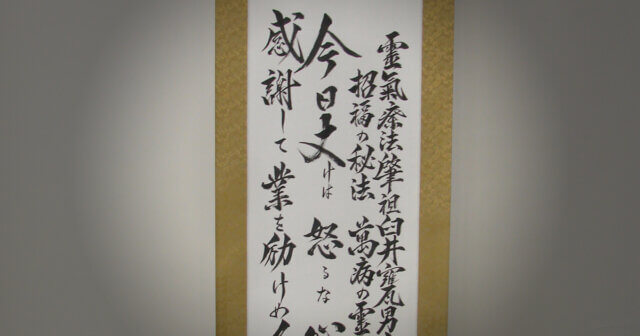 靈氣療法肇祖臼井甕男
招福の秘法 萬病の靈
今日丈けは 怒るな
感謝して 業を励けめ